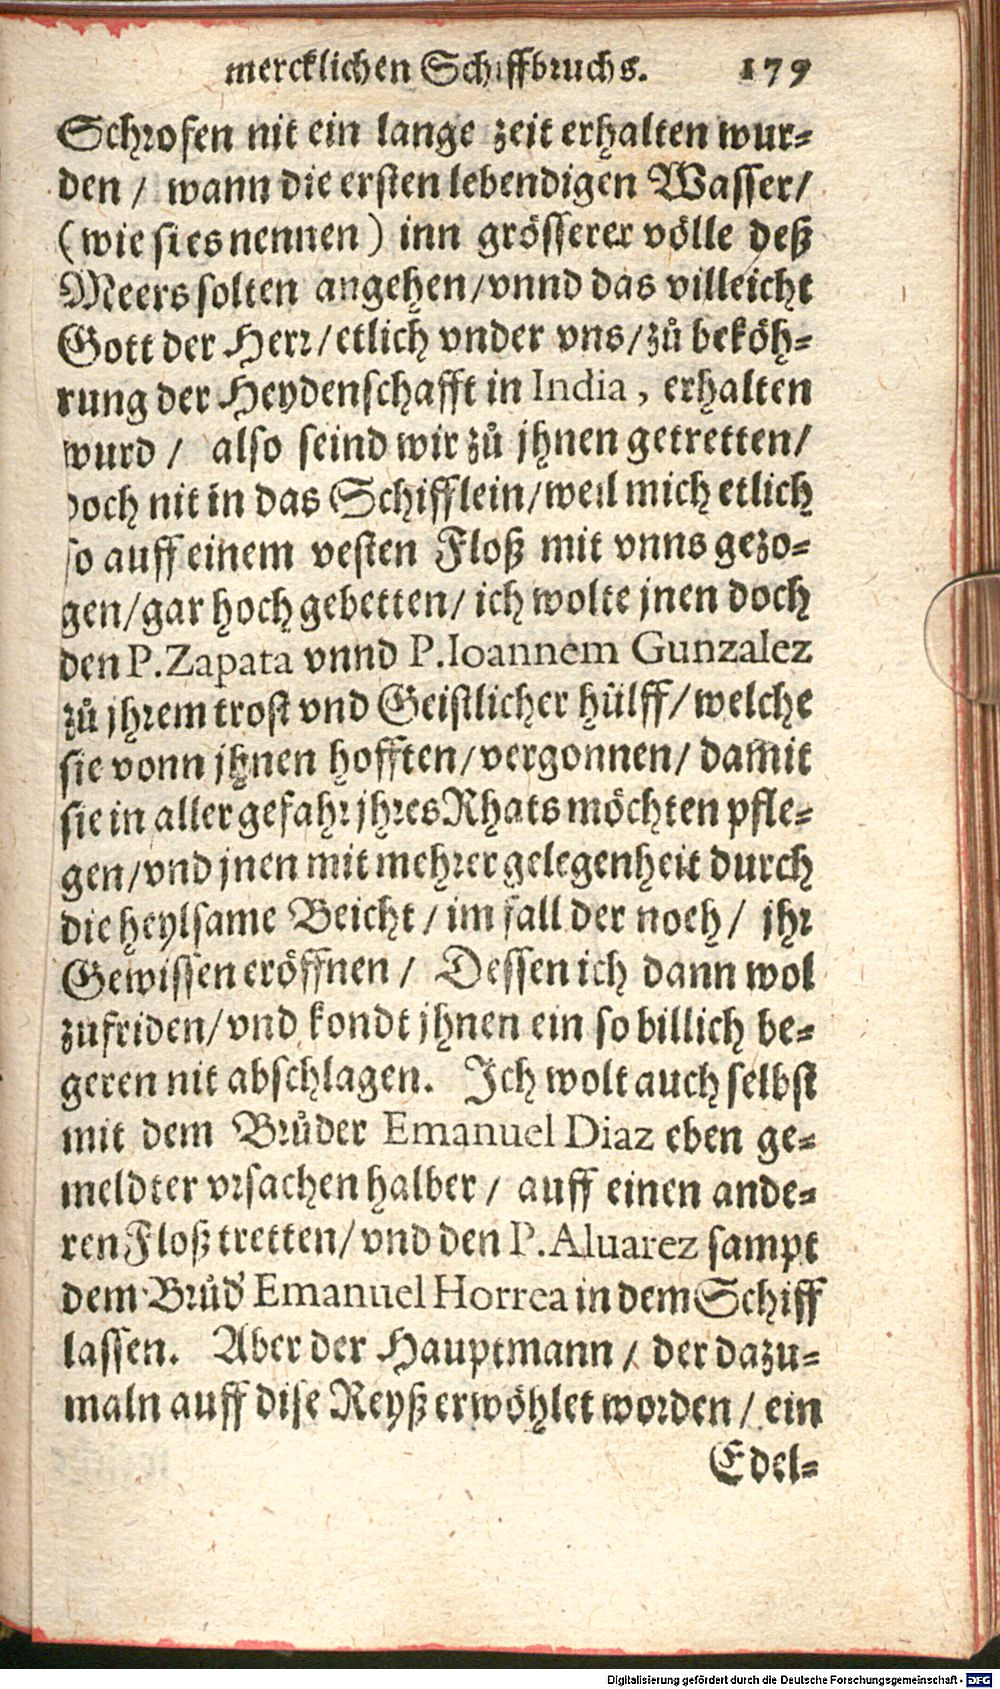 mercklichen Schiffbruchs. 179
Schrofen nit ein lange zeit erhalten wur-
den / wann die ersten lebendigen Wasser /
(wie si es nennen) inn grösserer völle deß
Meers solten angehen / vnnd das villeicht
Gott der Herr / etlich vnder vns / zů beköh-
rung der Heydenschafft in India, erhalten
wurd / also seind wir zů jhnen getretten /
doch nit in das Schifflein / weil mich etlich
so auff einem vesten Floß mit vnns gezo-
gen / gar hoch gebetten / ich wolte jnen doch
den P. Zapata vnnd P. Ioannem Gunzalez
zů jhrem trost vnd Geistlicher hülff / welche
sie vonn jhnen hofften / vergonnen / damit
sie in aller gefahr jhres Rhats möchten pfle-
gen / vnd jnen mit mehrer gelegenheit durch
die heylsame Beicht / im fall der noeh / jhr
Gewissen eröffnen / Dessen ich dann wol
zufriden / vnd kondt jhnen ein so billich be-
geren nit abschlagen. Ich wolt auch selbst
mit dem Brůder Emanuel Diaz eben ge-
meldter vrsachen halber / auff einen ande-
ren Floß tretten / vnd den P. Aluarez sampt
dem Brůd' Emanuel Horrea in dem Schiff
lassen. Aber der Hauptmann / der dazu-
maln auff dise Reyß erwöhlet worden / ein
Edel-
Digitalisierung gefördert durch die Deutsche Forschungsgemeinschaft - DFG